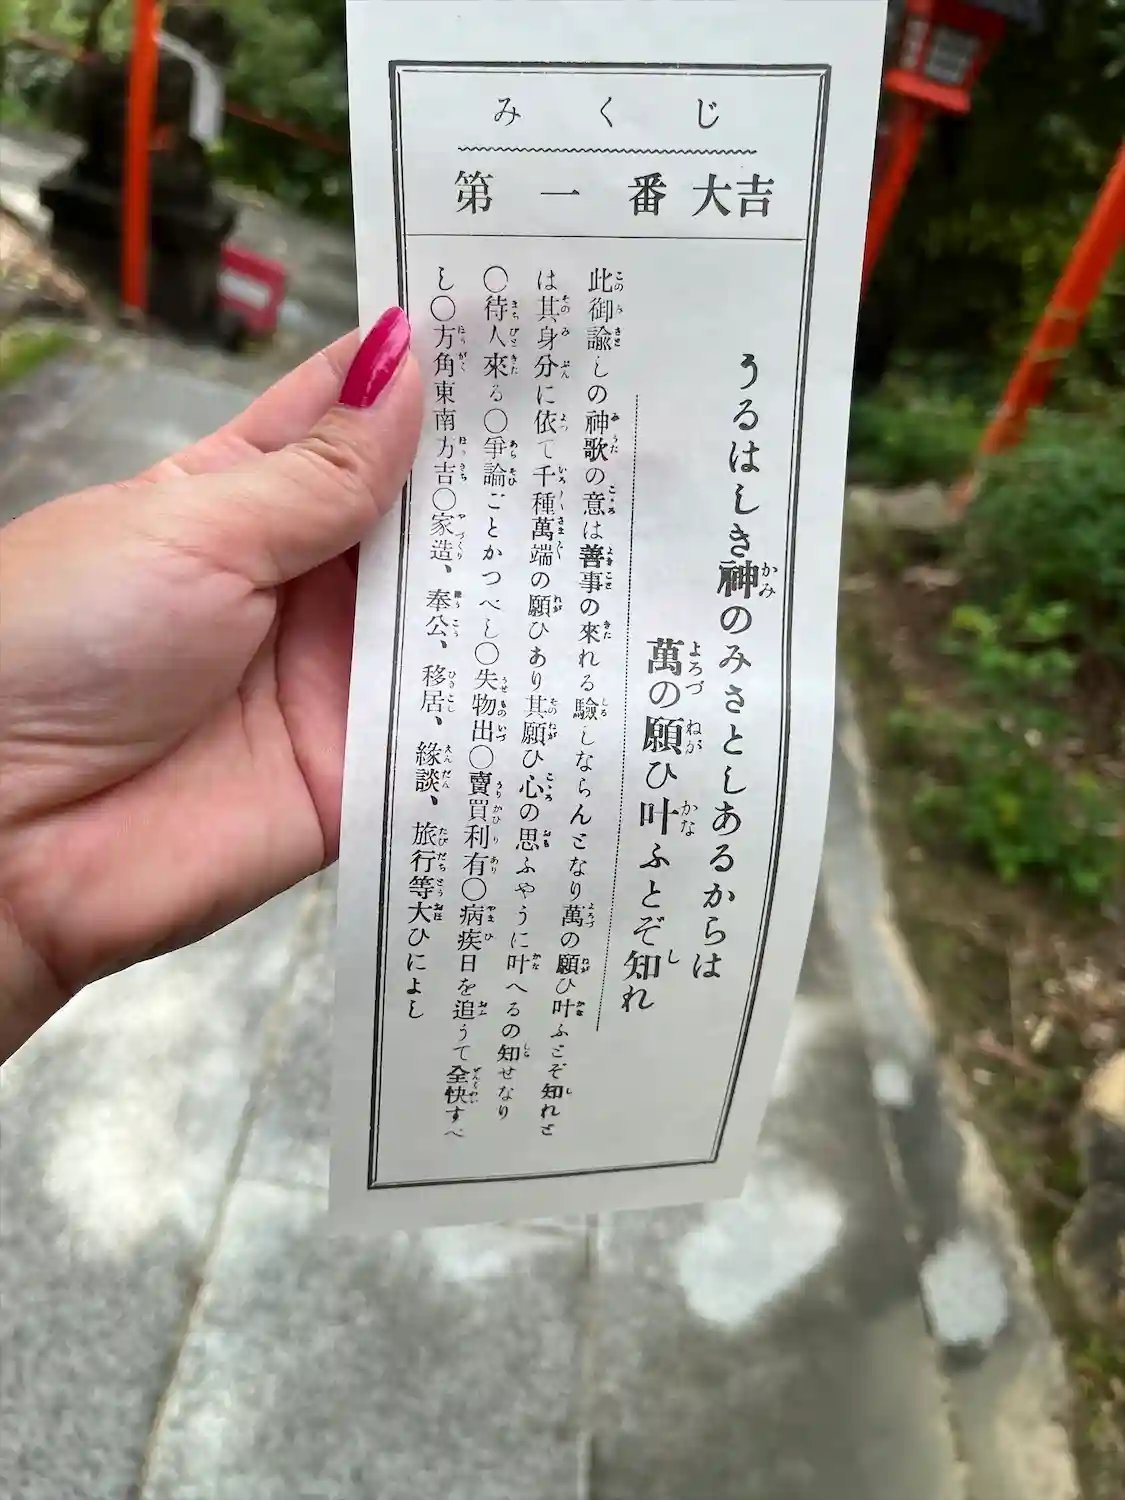 みくじ
第一番 大吉
うるはしき神のみさとしあるからは
萬の願ひ叶ふとぞ知れ
此御諭しの神歌の意は善事の來れる驗しならんとなり萬の願ひ叶ふとぞ知れと
は其身分に依て千種萬端の願ひあり其願ひ心の思ふやうに叶へるの知せなり
〇待人來る〇爭論ことかつべし〇失物出〇賣買利有〇病疾日を追うて全快すべ
し〇方角東南方吉〇家造、奉公、移居、緣談、旅行等大ひによし